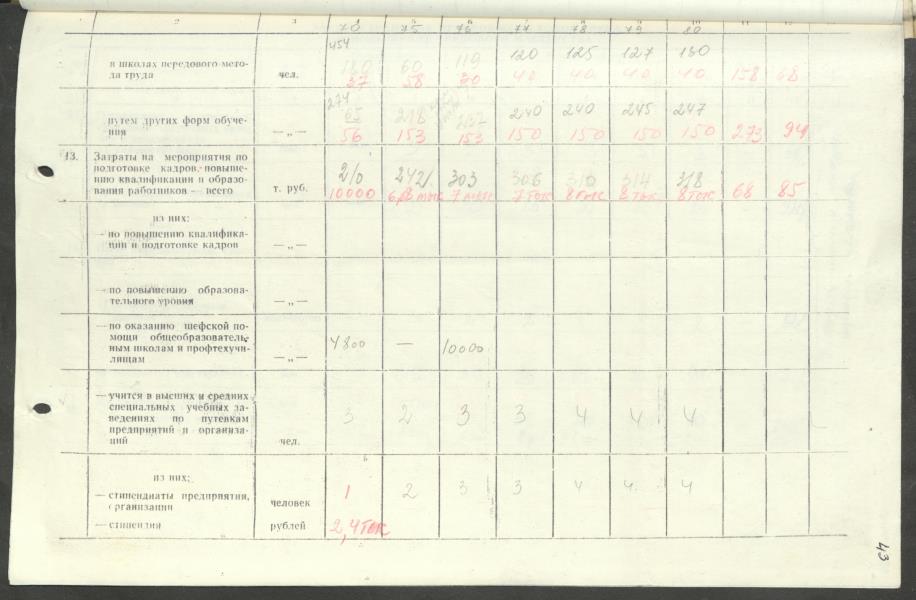 2 3
70 75 76 77 78 79 80
454
в школах передового мето-
да труда чел. 180 60 119 120 125 127 130
37 58 30 40 40 40 40 158 68
274
путем других форм обуче-
ния — „ — 218 240 240 245 247
56 153 153 150 150 150 150 273 94
13. Затраты на мероприятия по
подготовке кадров, повыше-
нию квалификации и образо-
вания работников — всего т. руб. 210 242 303 306 310 314 318
10000 7 тыс 8 тыс 68 85
из них:
— по повышению квалифика-
ции и подготовке кадров — „ —
— по повышению образова-
тельного уровня — „ —
— по оказанию шефской по-
мощи общеобразователь-
ным школам и профтехучи-
лищам — „ — 4800 — 10000
— учится в высших и средних
специальных учебных за-
ведениях по путевкам
предприятий и организа-
ций чел. 3 2 3 3 4 4 4
из них:
— стипендиаты предприятия,
организации человек 1 2 3 3 4 4 4
— стипендия рублей 2,4 тыс
43